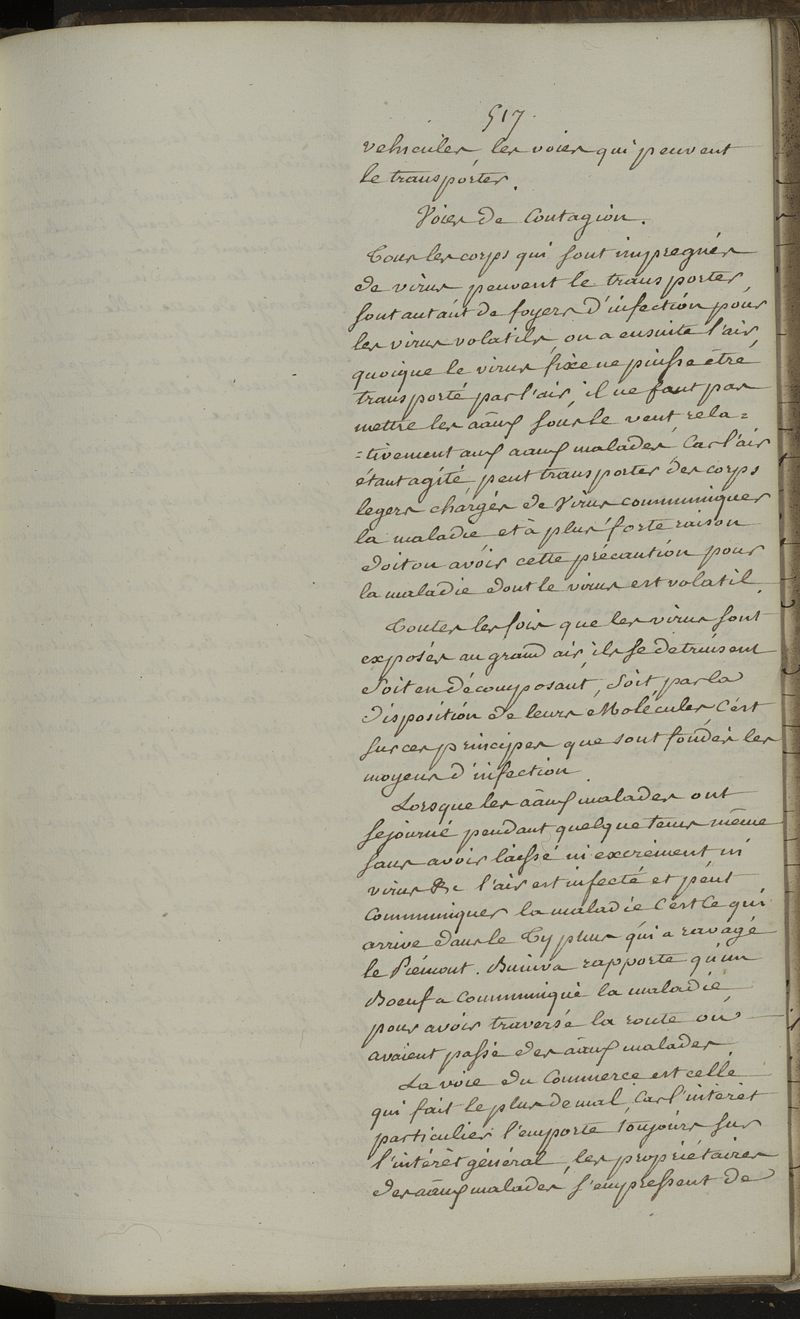 517.
vehicules, les voies qui peuvent
le transporter.
Voies de Contagion.
Tous les corps qui sont impregnés
de virus peuvent le transporter,
sont autant de foyers d'infection pour
les virus volatils, on a ensuite l'air,
quoique le virus fixe ne puisse être
transporté par l'air, il ne faut pas
mettre les aãux sous le vent rela=
=tivement aux aaux malades, Car l'air
étant agité peut transporter des corps
legers chargés de Virus communiquer
la maladie et à plus forte raison
doit on avoir cette précaution pour
la maladie dont le virus est volatil.
Toutes les fois que les virus sont
exposés au grand air, ils se detruisent
Soit en décomposant, Soit par la
disposition de leurs Molécules, C'est
sur ces principes que sont fondés les
moyens d'infection.
Lorsque les aãux malades ont
sejourné pendant quelque tems même
sans avoir laissé ni excrément ni
virus &c l'air est infecté et peut
Communiquer la maladie C'est Ce qui
arrive dans le Typhus qui a ravagé
le Piémont. Buniva rapporte qu'un
Boeuf a Communiqué la maladie
pour avoir traversé la route où
avaient passé des aãux malades.
La voie du Commerce est celle
qui fait le plus de mal, Car l'intérêt
particulier l'emporte toujours sur
l'intérêt général, les propriétaires
des aãux malades, s'empressent de